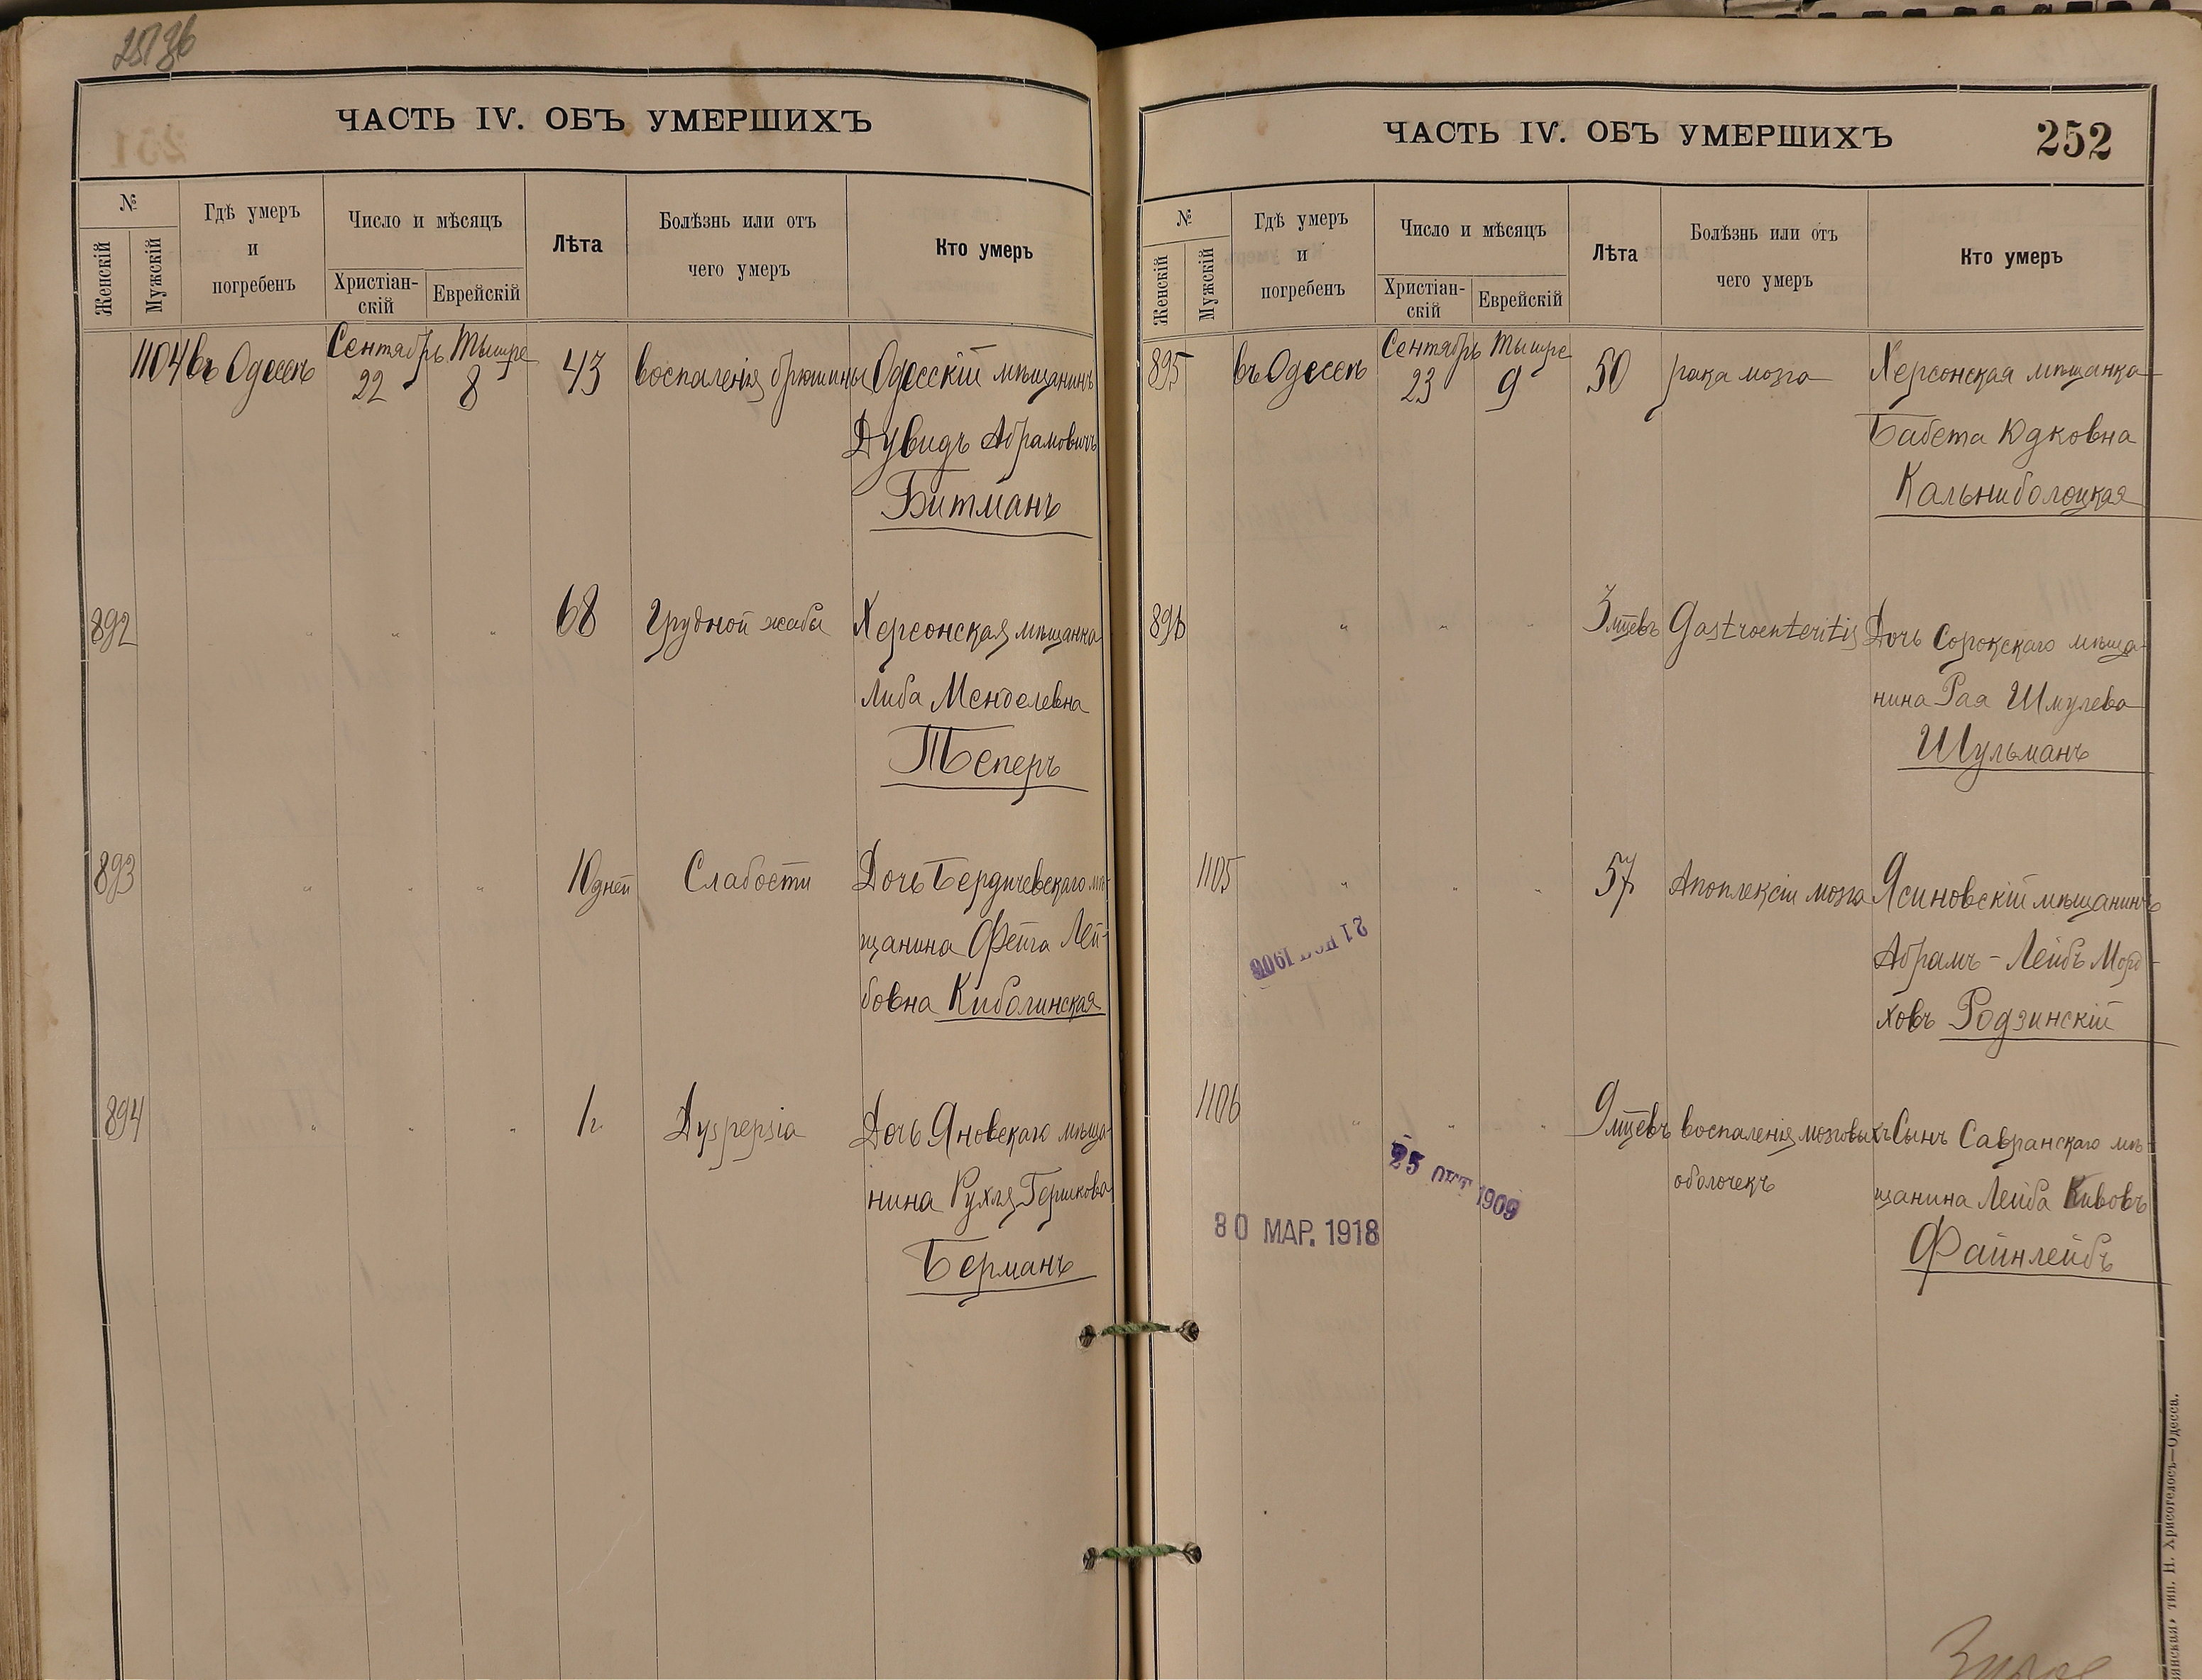 ЧАСТЬ IV. ОБЪ УМЕРШИХЪ
№
Женскій
Мужскій
Гдѣ умеръ
и
погребенъ
Число и мѣсяцъ
Христіан-
скій
Еврейскій
Лѣта
Болѣзнь или отъ
чего умеръ
Кто умеръ
1104 въ Одессѣ Сентябрь 22 Тишре 8 43 воспаленія брюшины Одесскій мѣщанинъ
Дувидъ Абрамовичъ
Битманъ
892 " " " 68 Грудной жабы Херсонская мѣщанка
Либа Менделевна
Теперъ
893 " " " 10 дней Слабости Дочь Бердичевскаго мѣ-
щанина Фейга Лей-
бовна Киболинская
894 " " " 1 г. Dyspepsia Дочь Яновскаго мѣща-
нина Рухля Гершкова
Берманъ
ЧАСТЬ IV. ОБЪ УМЕРШИХЪ
252
№
Женскій
Мужскій
Гдѣ умеръ
и
погребенъ
Число и мѣсяцъ
Христіан-
скій
Еврейскій
Лѣта
Болѣзнь или отъ
чего умеръ
Кто умеръ
895 въ Одессѣ Сентябрь 23 Тишре 9 50 рака мозга Херсонская мѣщанка
Бабета Юдковна
Кальниболоцкая
896 " " " 3 мцевъ Gastroenteritis Дочь Сорокскаго мѣща-
нина Рая Шмулева
Шульманъ
1105 " " " 57 Апоплексіи мозга Ясиновскій мѣщанинъ
Абрамъ-Лейбъ Морд-
ховъ Родзинскій
1106 " " " 9 мцевъ воспаленія мозговыхъ Сынъ Савранскаго мѣ-
оболочекъ щанина Лейба Кивовъ
Файнлейбъ
25 ОКТ 1909
30 МАР. 1918
тип. И. Хрисогелосъ—Одесса.